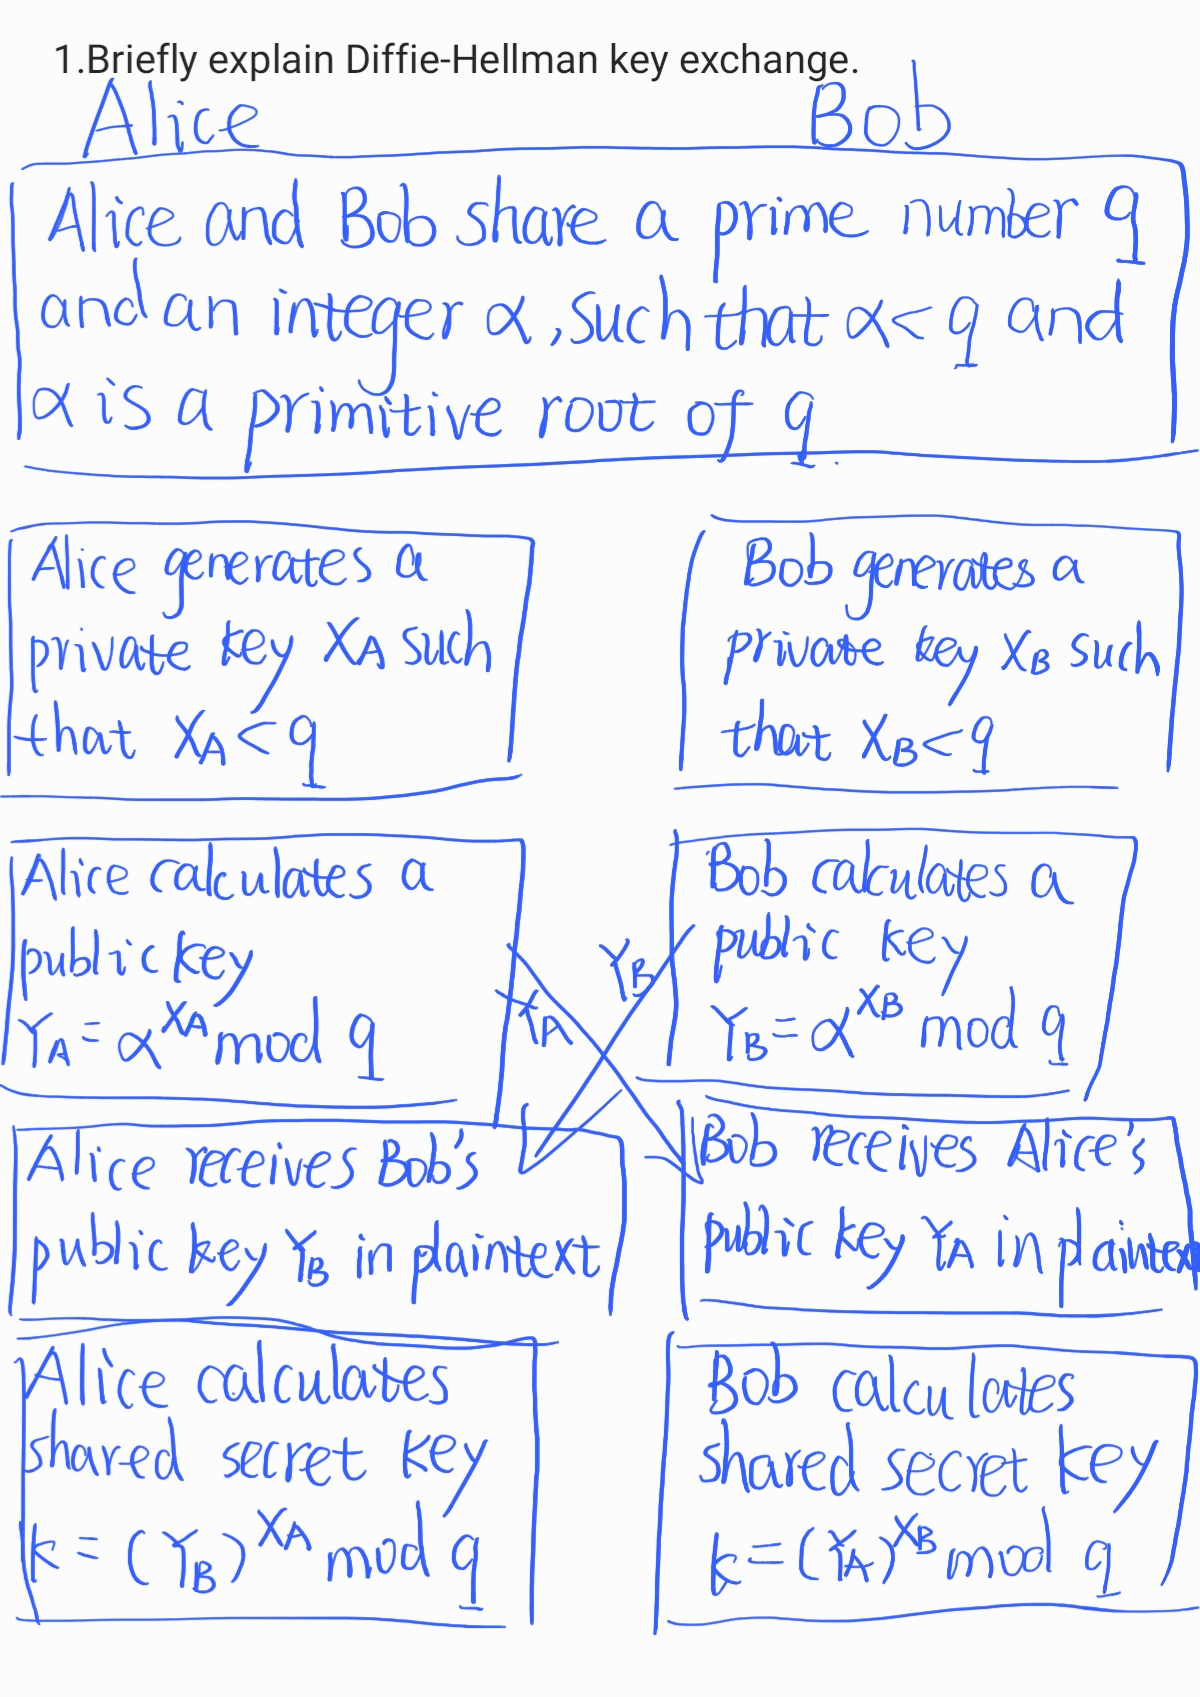 1.Briefly explain Diffie-Hellman key exchange.
Alice Bob
Alice and Bob share a prime number q
and an integer α, such that α < q and
α is a primitive root of q.
Alice generates a
private key XA such
that XA < q
Bob generates a
private key XB such
that XB < q
Alice calculates a
public key
YA = α^XA mod q
Bob calculates a
public key
YB = α^XB mod q
YA
YB
Alice receives Bob's
public key YB in plaintext
Bob receives Alice's
public key YA in plaintext
Alice calculates
shared secret key
k = (YB)^XA mod q
Bob calculates
shared secret key
k = (YA)^XB mod q